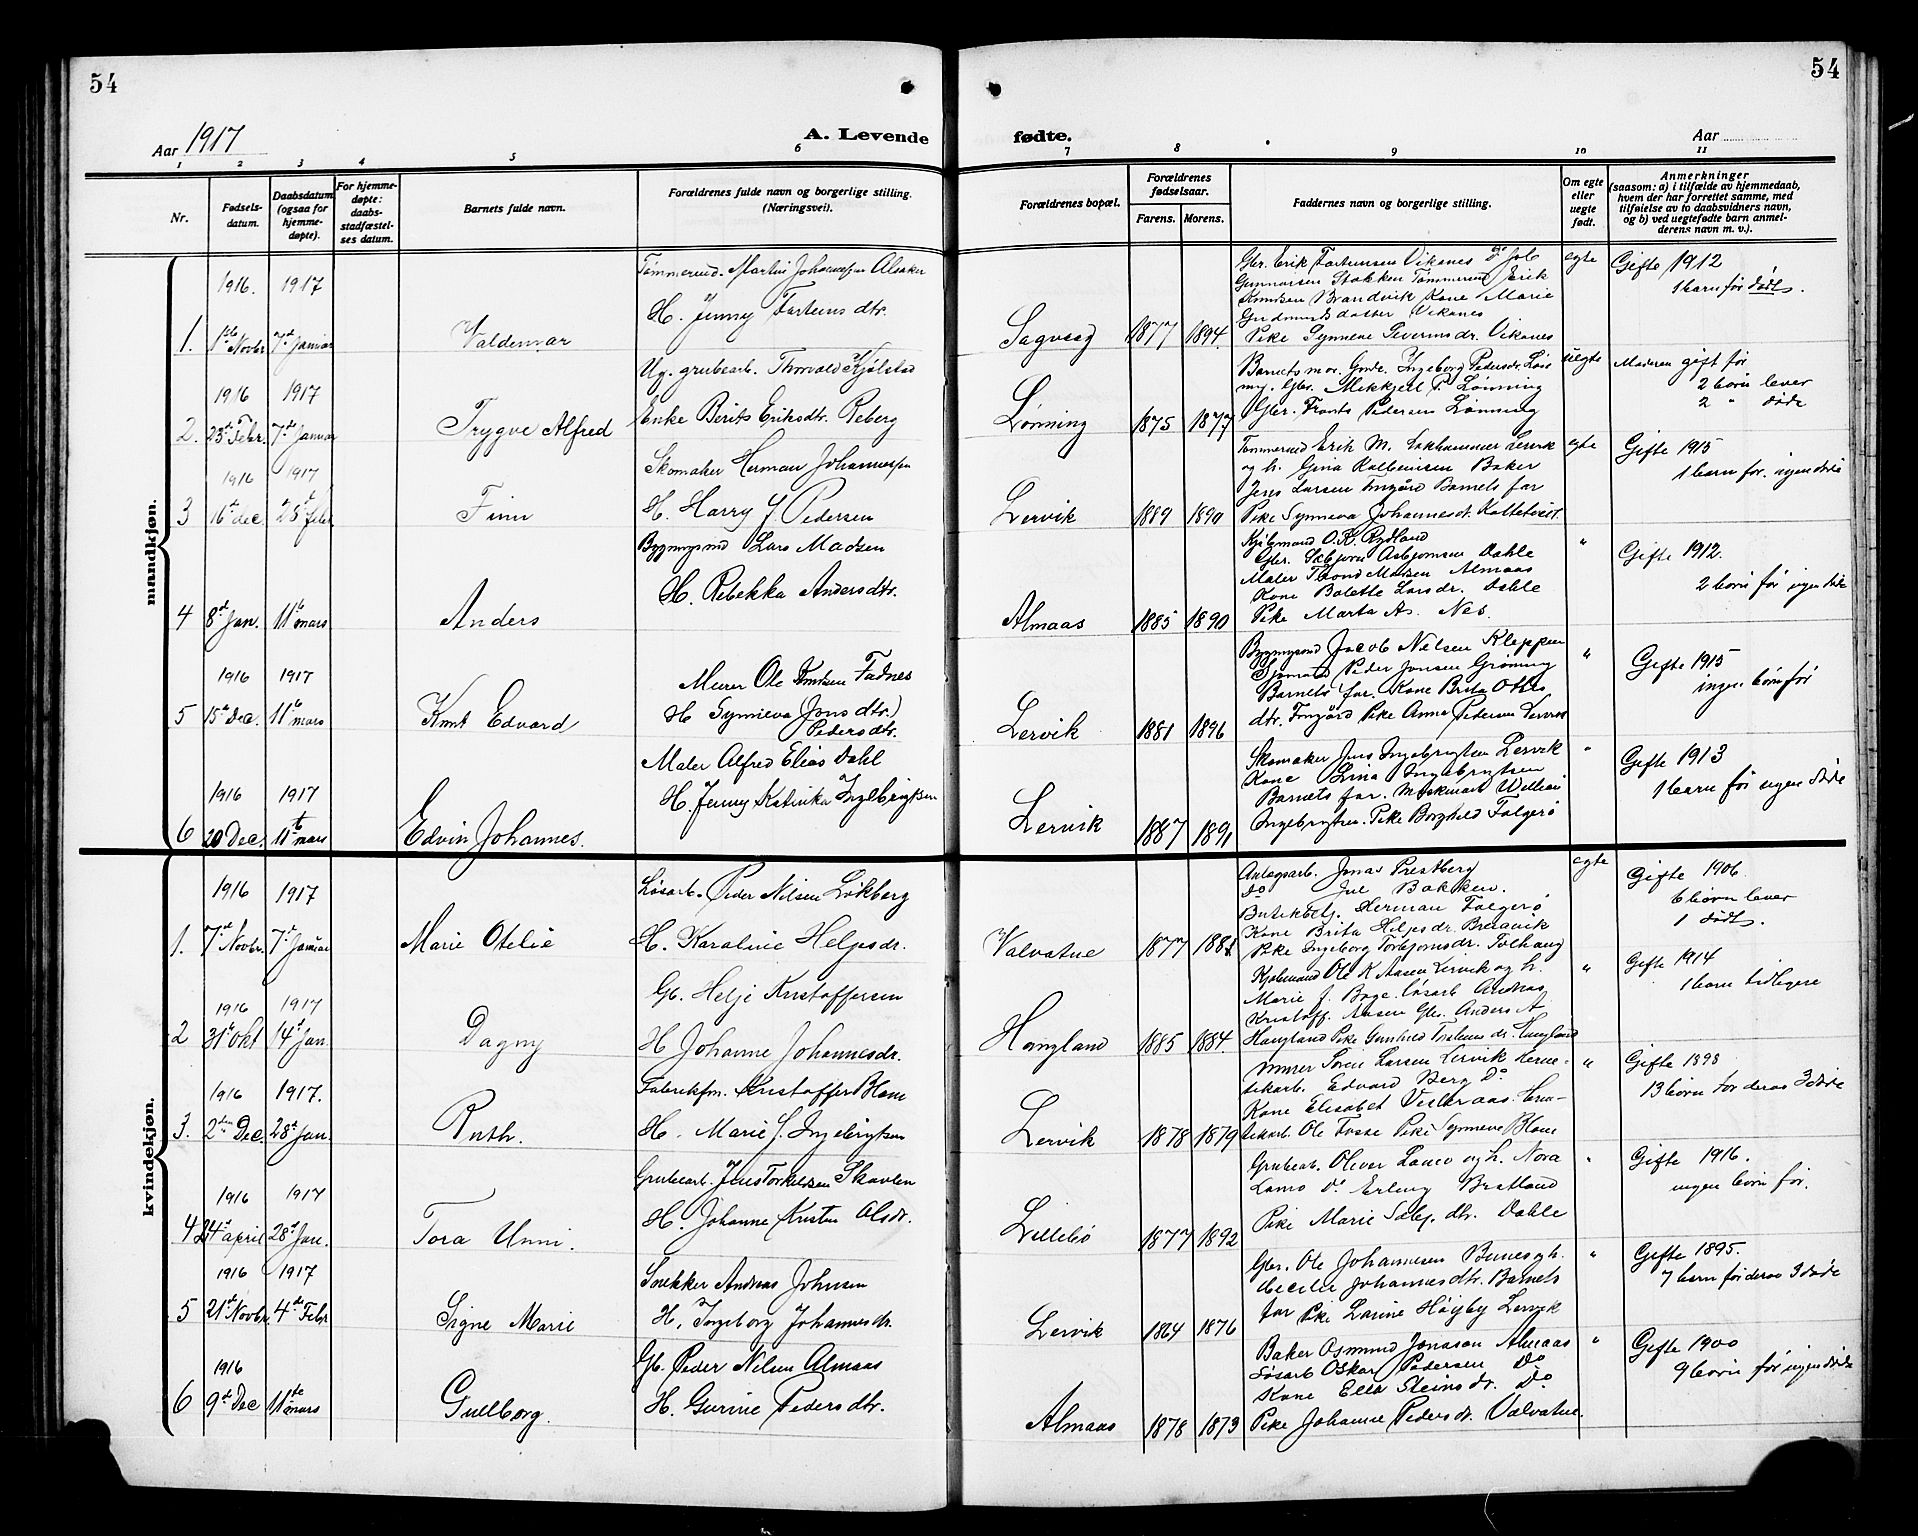 54
54
Aar 1917
A. Levende fødte.
Aar
1 2 3 4 5 6 7 8 9 10 11
Nr.
Fødsels-
datum.
Daabsdatum
(ogsaa for
hjemme-
døpte).
For hjemme-
døpte:
daabs-
stadfæstel-
ses datum.
Barnets fulde navn.
Forældrenes fulde navn og borgerlige stilling.
(Næringsvei).
Forældrenes bopæl.
Forældrenes
fødselsaar.
Farens. Morens.
Faddernes navn og borgerlige stilling.
Om egte
eller
uegte
født.
Anmerkninger
(saasom: a) i tilfælde av hjemmedaab,
hvem der har forrettet samme, med
tilføielse av to daabsvidners navn,
og b) ved uegtefødte barn anmel-
derens navn m. v.).
mandkjøn.
1916. 1917
1. Novbr 7de Januar
Valdemar
Tømmermd. Martin Johannessen Alsaker
H. Jenny dtr.
Sagvaag 1877 1894
Gbr. Erik Vikanes
Gunnarsen Stokken Tømmermd Erik
Knutsen Brandvik Kone Marie
Gudmundsdatter Vikanes
Pike Synneve Vikanes
egte
Gifte 1912
1 barn før dødt.
1916 1917
2. 23de Febr. 7de Januar
Trygve Alfred
Ug. grubearb. Thorvald Kjølstad
Enke Berits Eriksdtr. Reberg
Lønning 1875 1877
Barnets mor. Ingeborg Pedersdr. Løn
Gbr. Mikkjell P. Lønning
Gbr. Frants Pedersen Lønning
uegte
Moderen gift før
2 børn lever
2 " døde
1916 1917
3 16de dec. 25de febr
Finn
Skomaker Herman Johannessen
H. Harry J. Pedersen
Lervik 1889 1890
Tømmermd Erik M. Lervik
og h. Gina Baker
Jens Larsen Barnets far
Pike Synneva Johannesdt.
egte
Gifte 1915
1 barn før. ingen døde
4 8de Jan. 11te mars
Anders
Bygmysmd Lars Madsen
H. Rebekka Andersdtr.
Almaas 1885 1890
Kjøbmand O. K. Rydland
Gbr. Asbjørnsen Dahle
Maler Trond Madsen Almaas
Kone Bolette Larsdr. Dahle
Pike Marta As. Nes.
"
Gifte 1912.
2 børn før ingen døde
1916 1917
5 15de Dec. 11te mars
Knut Edvard
Murer Ole Knutsen Fadnes
H Synneva Jonsdtr.)
Pedersdtr.
Lervik 1881 1896
Jacob Nilsen Kleppen
Peder Jonsen Grønning
Barnets far. Kone Brita Olds
dtr. Pike Anna Pedersen Lervik
"
Gifte 1915
ingen børn før
1916 1917
6 20 Dec. 11te mars
Edvin Johannes.
Maler Alfred Elias Dahl
H. Jenny Katinka Ingebrigtsen
Lervik 1887 1891
Skomaker Jens Ingebrigtsen Lervik
Kone Lina Ingebrigtsen
Barnets far. William
Ingebrigtsen. Pike Borghild Falgerø
"
Gifte 1913
1 barn før ingen døde
kvindekjøn.
1916 1917
1. 7de Novbr. 7de Januar
Marie Otelie
Løsarb. Peder Nilsen Løkberg
H. Karoline Helgesdr.
Valvatne 1877
Anlegsarb. Jonas Prestberg
Do Bakken.
Herman Falgerø
Kone Brita Helgesdr.
Pike Ingeborg Torbjørnsdr.
egte
Gifte 1906.
6 børn lever
1 dødt.
1916 1917
2 31te Okt 14de Jan.
Dagny
Gb. Helje Kristoffersen
H Johanne Johannesdr.
Haugland 1885 1884.
Kjøbmand Ole K Aasen Lervik og h.
Marie J. Løsarb Andreas
Kristoff. Aasen Gbr. Anders A
Haugland Pike Gunhild Haugland
"
Gifte 1914
1 barn tidligere
1916 1917.
3. 2den Dec. 28de Jan.
Ruth.
Fabrikfm. Kristoffer Blom
H. Marie J. Ingebrigtsen
Lervik 1878 1879
Murer Larsen Lervik Herme-
tikarb. Edvard Berg Do
Kone Elisabet Herm-
tikarb. Ole Fosse Pike Synneve Blom
"
Gifte 1898
13 børn før deraf 3 døde
1916 1917
4 24de april 28de Jan.
Tora Unni.
Grubearb. Jens Torkelsen Skavlen
H. Johanne Kristen Alsdr.
Lillebø 1877 1892
Grubearb. Oliver Lamo og h. Nora
Lamo Do Erling Bratland
Pike Marie dtr. Dahle
"
Gifte 1916.
ingen børn før.
1916 1917
5 21de Novbr. 4de Febr
Signe Marie
Snekker Andreas Johnsen
H. Ingeborg Johannesdr.
Lervik 1864 1876
Gbr. Ole Johannesen og h.
Cecilie Johannesdtr. Barnets
far Pike Larine Høyby Lervik
"
Gifte 1895.
7 barn før deraf 3 døde
1916
6 9de Dec 11te mars
Gullborg.
Gb. Peder Nilsen Almaas
H. Gurine Pedersdtr.
Almaas 1878 1873
Baker Osmund Jonasson Almaas
Løsarb Oskar Pedersen Do
Kone Ella Steinsdr. Do
Pike Johanne Pedersdr. Valvatne.
"
Gifte 1900
9 børn før ingen døde